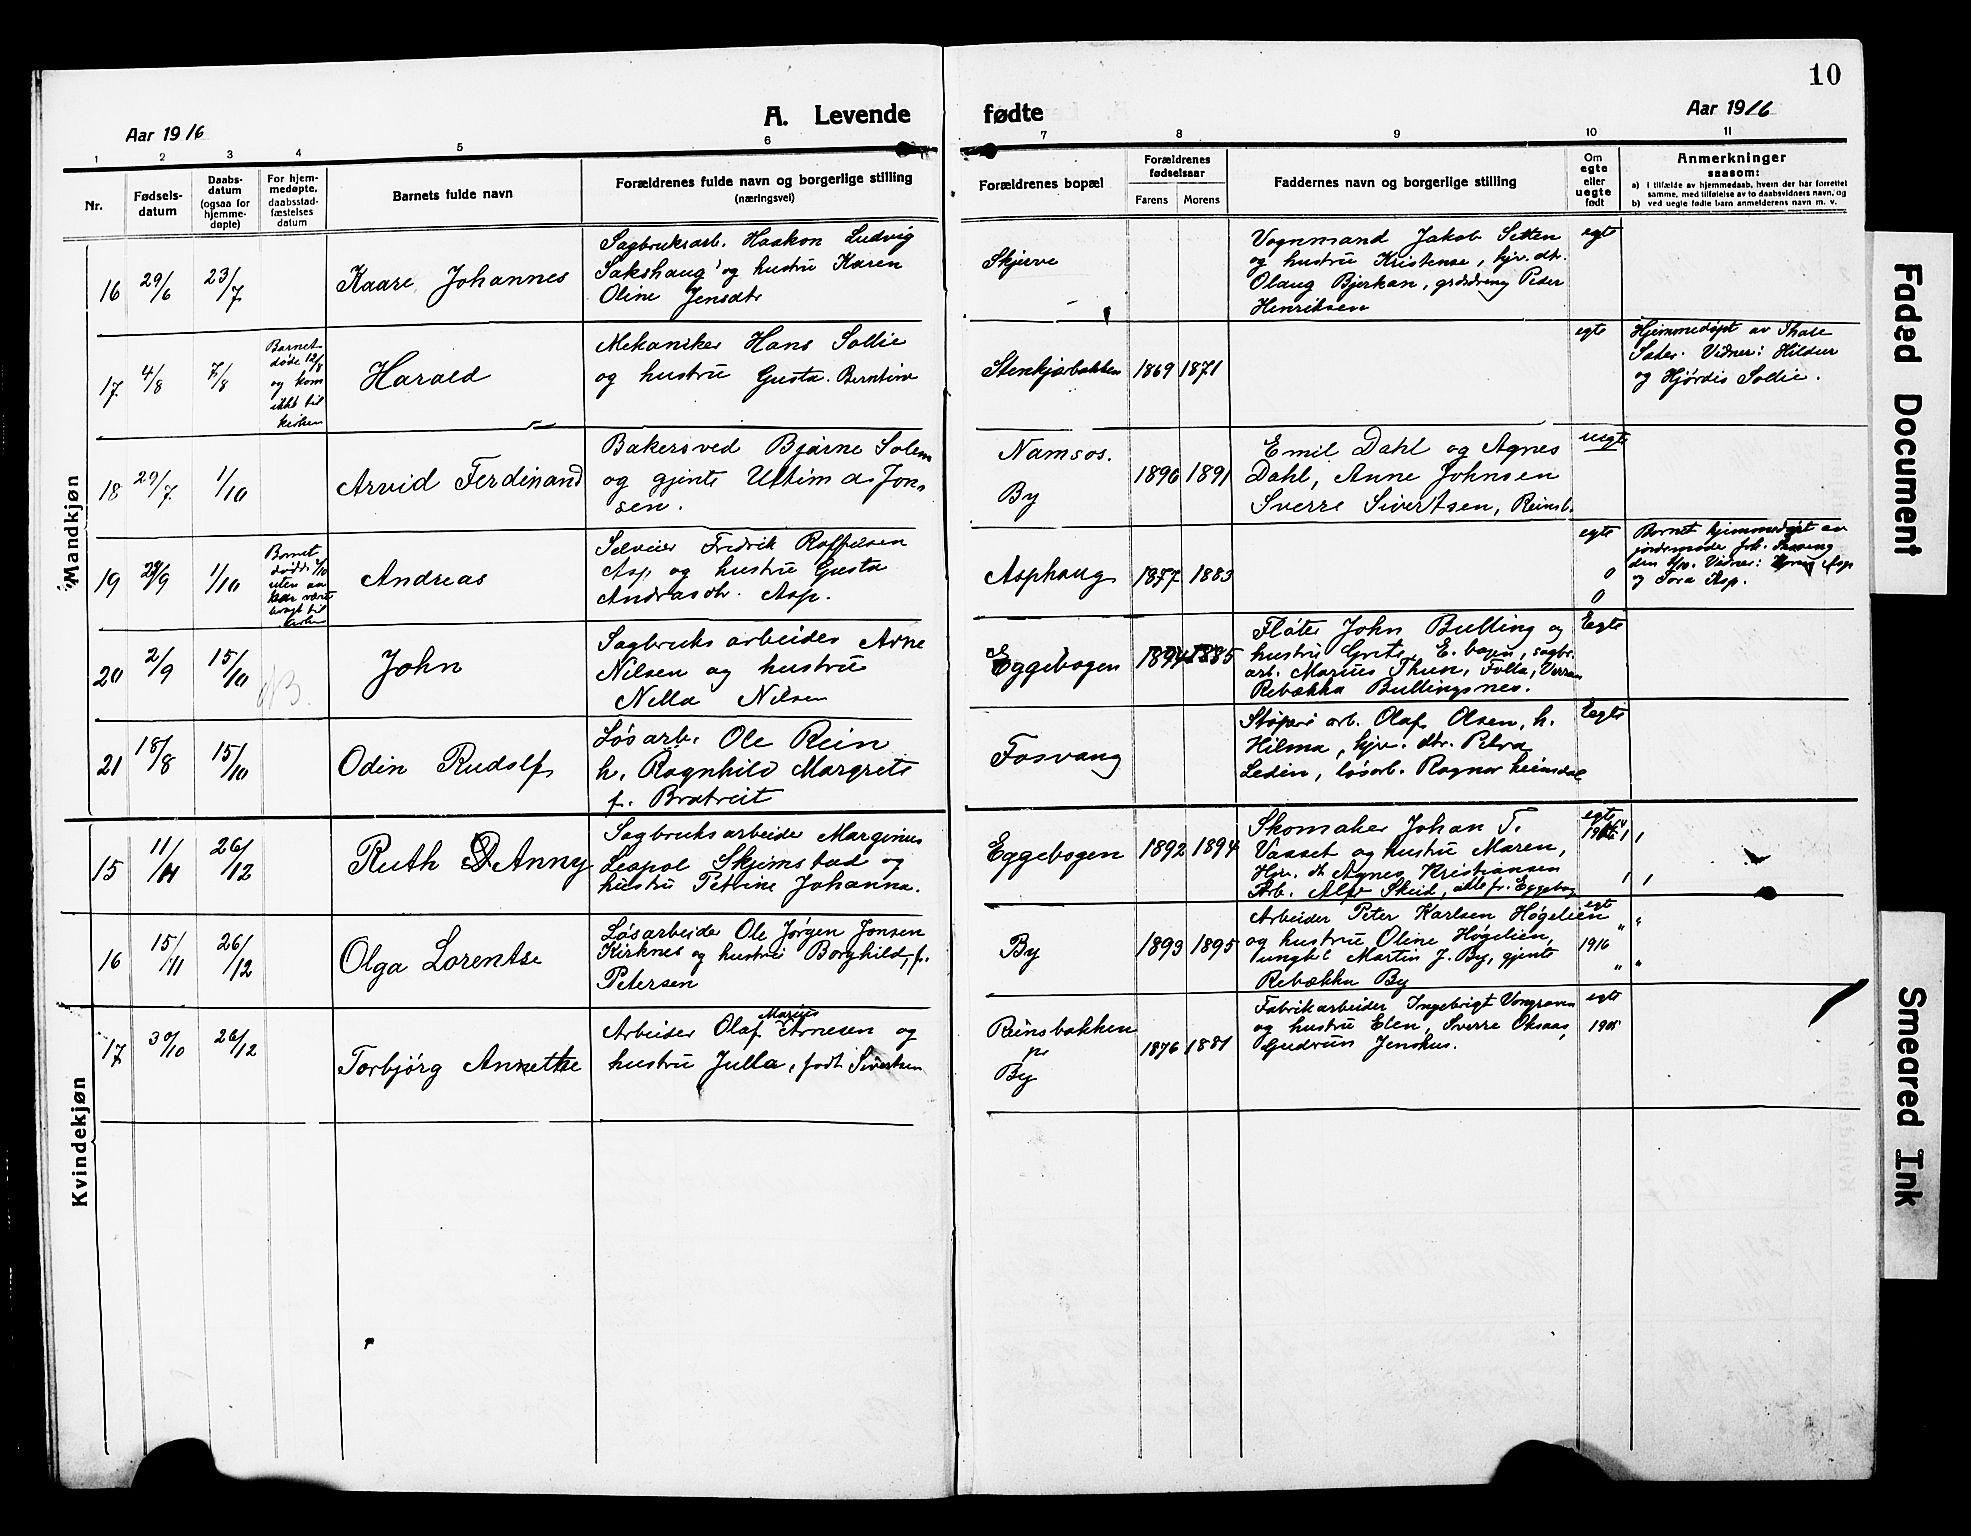 10
A. Levende fødte
Aar 1916
Aar 1916
1 2 3 4 5 6 7 8 9 10 11
Nr.
Fødsels-
datum
Daabs-
datum
(ogsaa for
hjemme-
døpte)
For hjem-
medøpte,
daabsstad-
fæstelses
datum
Barnets fulde navn
Forældrenes fulde navn og borgerlige stilling
(næringsvei)
Forældrenes bopæl
Forældrenes
fødselsaar
Farens Morens
Faddernes navn og borgerlige stilling
Om
egte
eller
uegte
født
Anmerkninger
saasom:
a) i tilfælde av hjemmedaab, hvem der har forrettet
samme, med tilføielse av to daabsvidners navn, og
b) ved uegte fødte barn anmelderens navn m. v.
Mandkjøn
16 29/6 23/7
Kaare Johannes
Sagbruksarb. Haakon Ludvig
Sakshaug og hustru Karen
Oline Jensdtr
Skjerve
Vognmand Jakob Setten
og hustru Kristense, hjv. dtr.
Olaug Bjerkan, grdrdreng Peder
Henriksen
egt
17 4/8 7/8
Barnet
døde 12/8
og kom
ikke til
kirken
Harald
Mekaniker Hans Sollie
og hustru Gusta Berntine
Stenkjærbakken 1869 1871
egte
Hjemmedøpt av Thale
Sæter. Vidner: Hildur
og Hjørdis Sollie.
18 29/7 1/10
Arvid Ferdinand
Bakersved Bjarne Solem
og gjente Ultima Jon-
sen.
Namsos.
By
1896 1891
Emil Dahl og Agnes
Dahl, Anne Johnsen
Sverre Sivertsen, Reinsb.
uegte
19 28/9 1/10
Barnet
døde
uten at
ha været
bragt til
kirken
Andreas
Selveier Fredrik Roffelsen
Asp og hustru Gusta
Andrasdtr. Asp.
Asphaug 1877 1883
egte
Barnet hjemmedøpt av
jordemoder
Vidner: Asp
og Tora Asp.
20 2/9 15/10
John
Sagbruksarbeider Arne
Nilsen og hustru
Nella Nilsen
Eggebogen 1894 1885
Fløter John Bulling og
hustru Grete, E. bogen, sagbr.
arb. Marius Thun, Folla, Verran
Rebekka Bullingsnes.
Eegte
21 18/8 15/10
Odin Rudolf
Løsarb. Ole Rein
h. Ragnhild Margrete
f. Bratreit
Fosvang
Støperi arb. Olaf Olsen, h.
Hilma, hjv. dtr. Petra
Ledin, løsarb. Ragnar Heimdal
Eegte
Kvindekjøn
15 11/11 26/12
Ruth Anny
Sagbruksarbeider Marginius
Leopol Skjemstad og
hustru Petrine Johanna.
Eggebogen 1892 1894
Skomaker Johan T.
Vasset og hustru Maren,
Hjv. dt Agnes Kristiansen
Arb. Alf Skeid, alle fr. Eggebog
egte
16 15/11 26/12
Olga Lorentse
Løsarbeider Ole Jørgen Jonsen
Kirknes og hustru Borghild, f.
Petersen
By 1893 1895
Arbeider Peter Karlsen Høgelien
og hustru Oline Høgelien,
ungkl Martin J. By, gjente
Rebekka By
egt
1916
17 30/10 26/12
Torbjørg Annethe
Arbeider Olaf Marius Arnesen og
hustru Julla, født Sivertsen
Reinsbakken
pr
By
1876 1881
Fabrikarbeider Ingebrigt Vongraven
og hustru Elen, Sverre Oksaas,
Gudrun Jenshus.
egt
1905
Faded Document
Smeared Ink